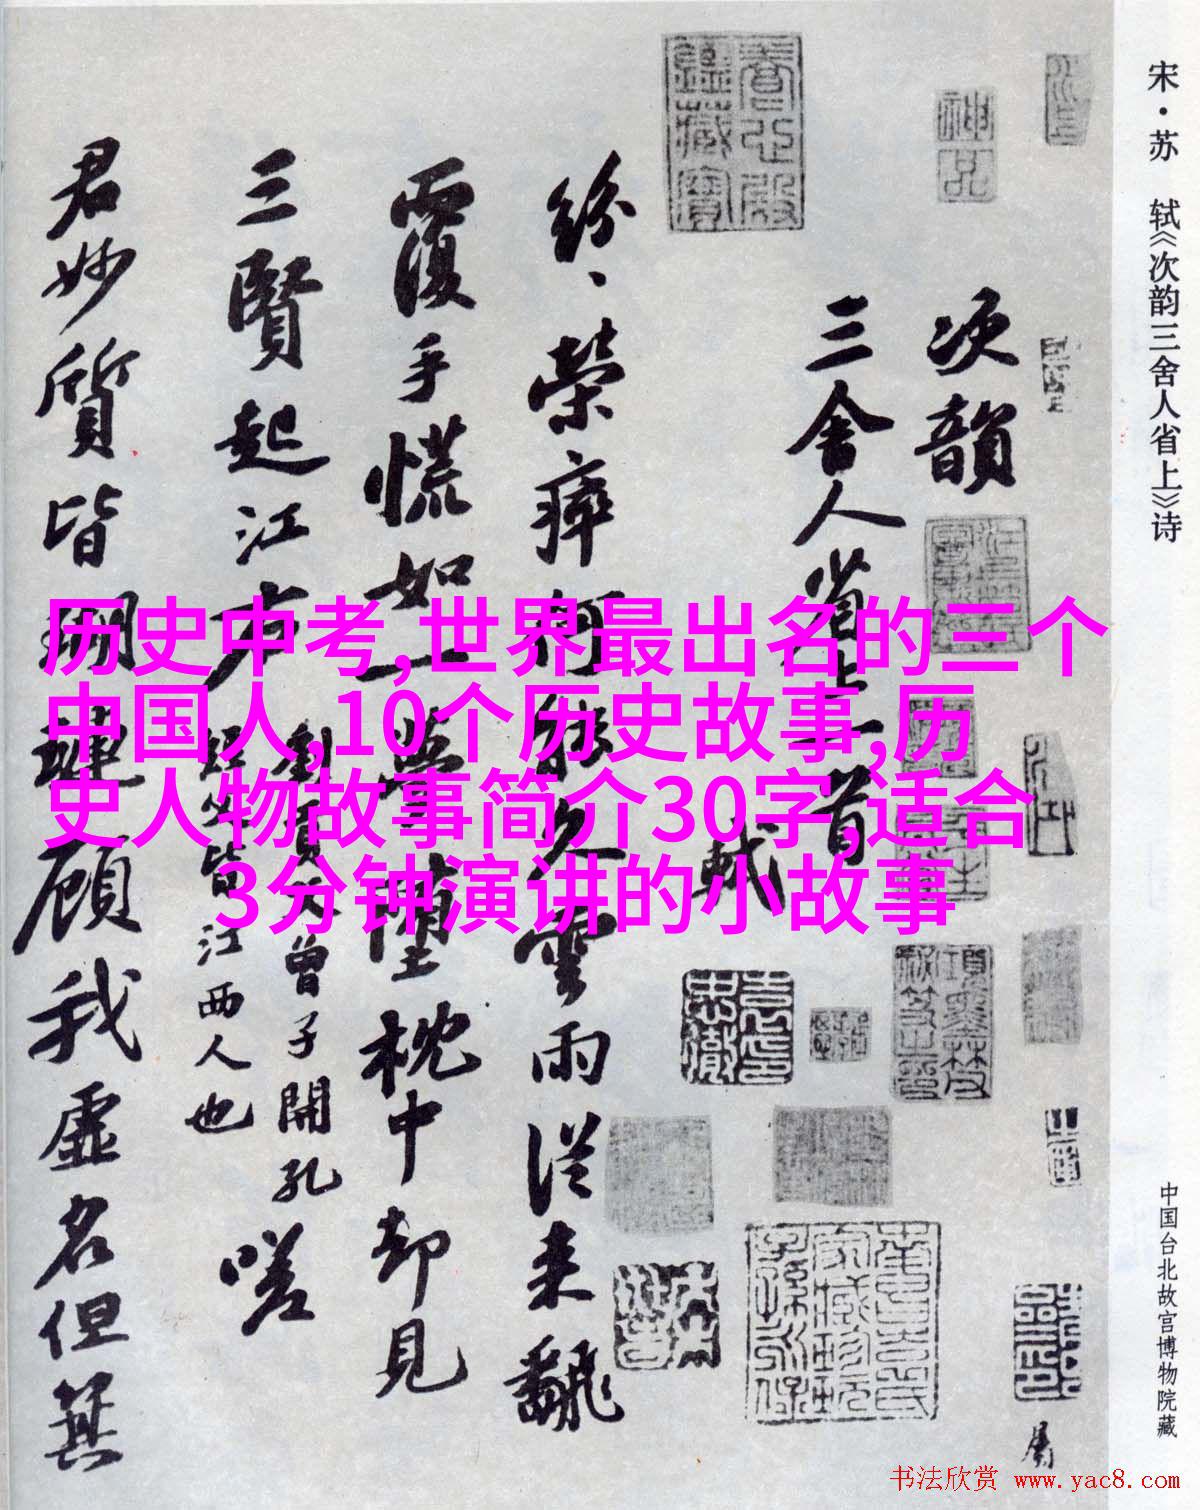 宋·苏 轼《次韵三舍人省上》诗
中国台北故宫博物院藏
次韻
三舍人省上一首
軾
紛、榮瘁何能久雲雨從来翻
覆手慌如一夢墮枕中却見
三賢起江右
劉貢父曾子開孔
經父皆江西人也
嗟
君妙質皆瑚璉顧我虛名但箕
历史中考,世界最出名的三个
中国人,10个历史故事,历
史人物故事简介30字,适合
3分钟演讲的小故事
神品
书法欣赏 www.yac8.com